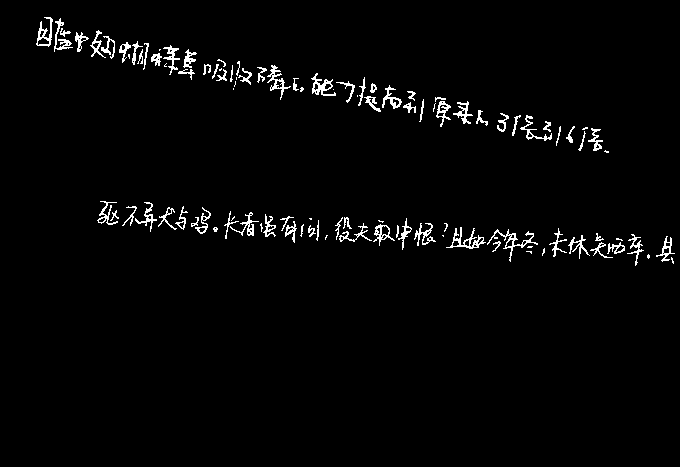 因盐中烟蝴蝶草吸收磷的能力提高到原来的3倍到6倍.
驱不异犬与鸡。长者虽有问,役夫敢申恨?且如今年冬,未休关西卒.县